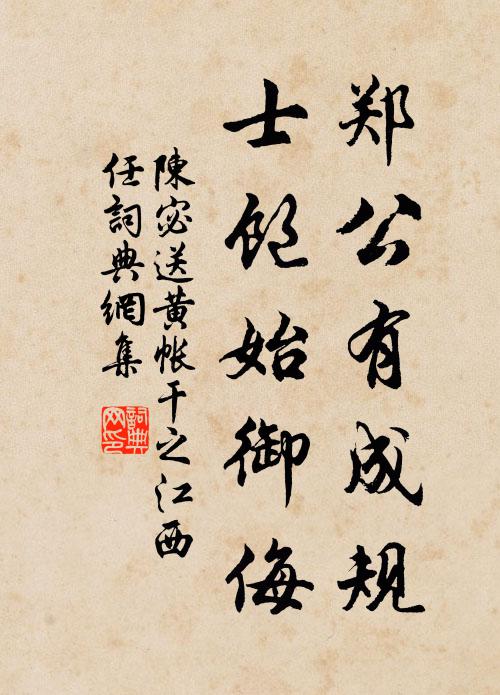 郑公有成规
士饱始御侮
陳宓送黄帐干之江西
任詞典網集
詞典网印